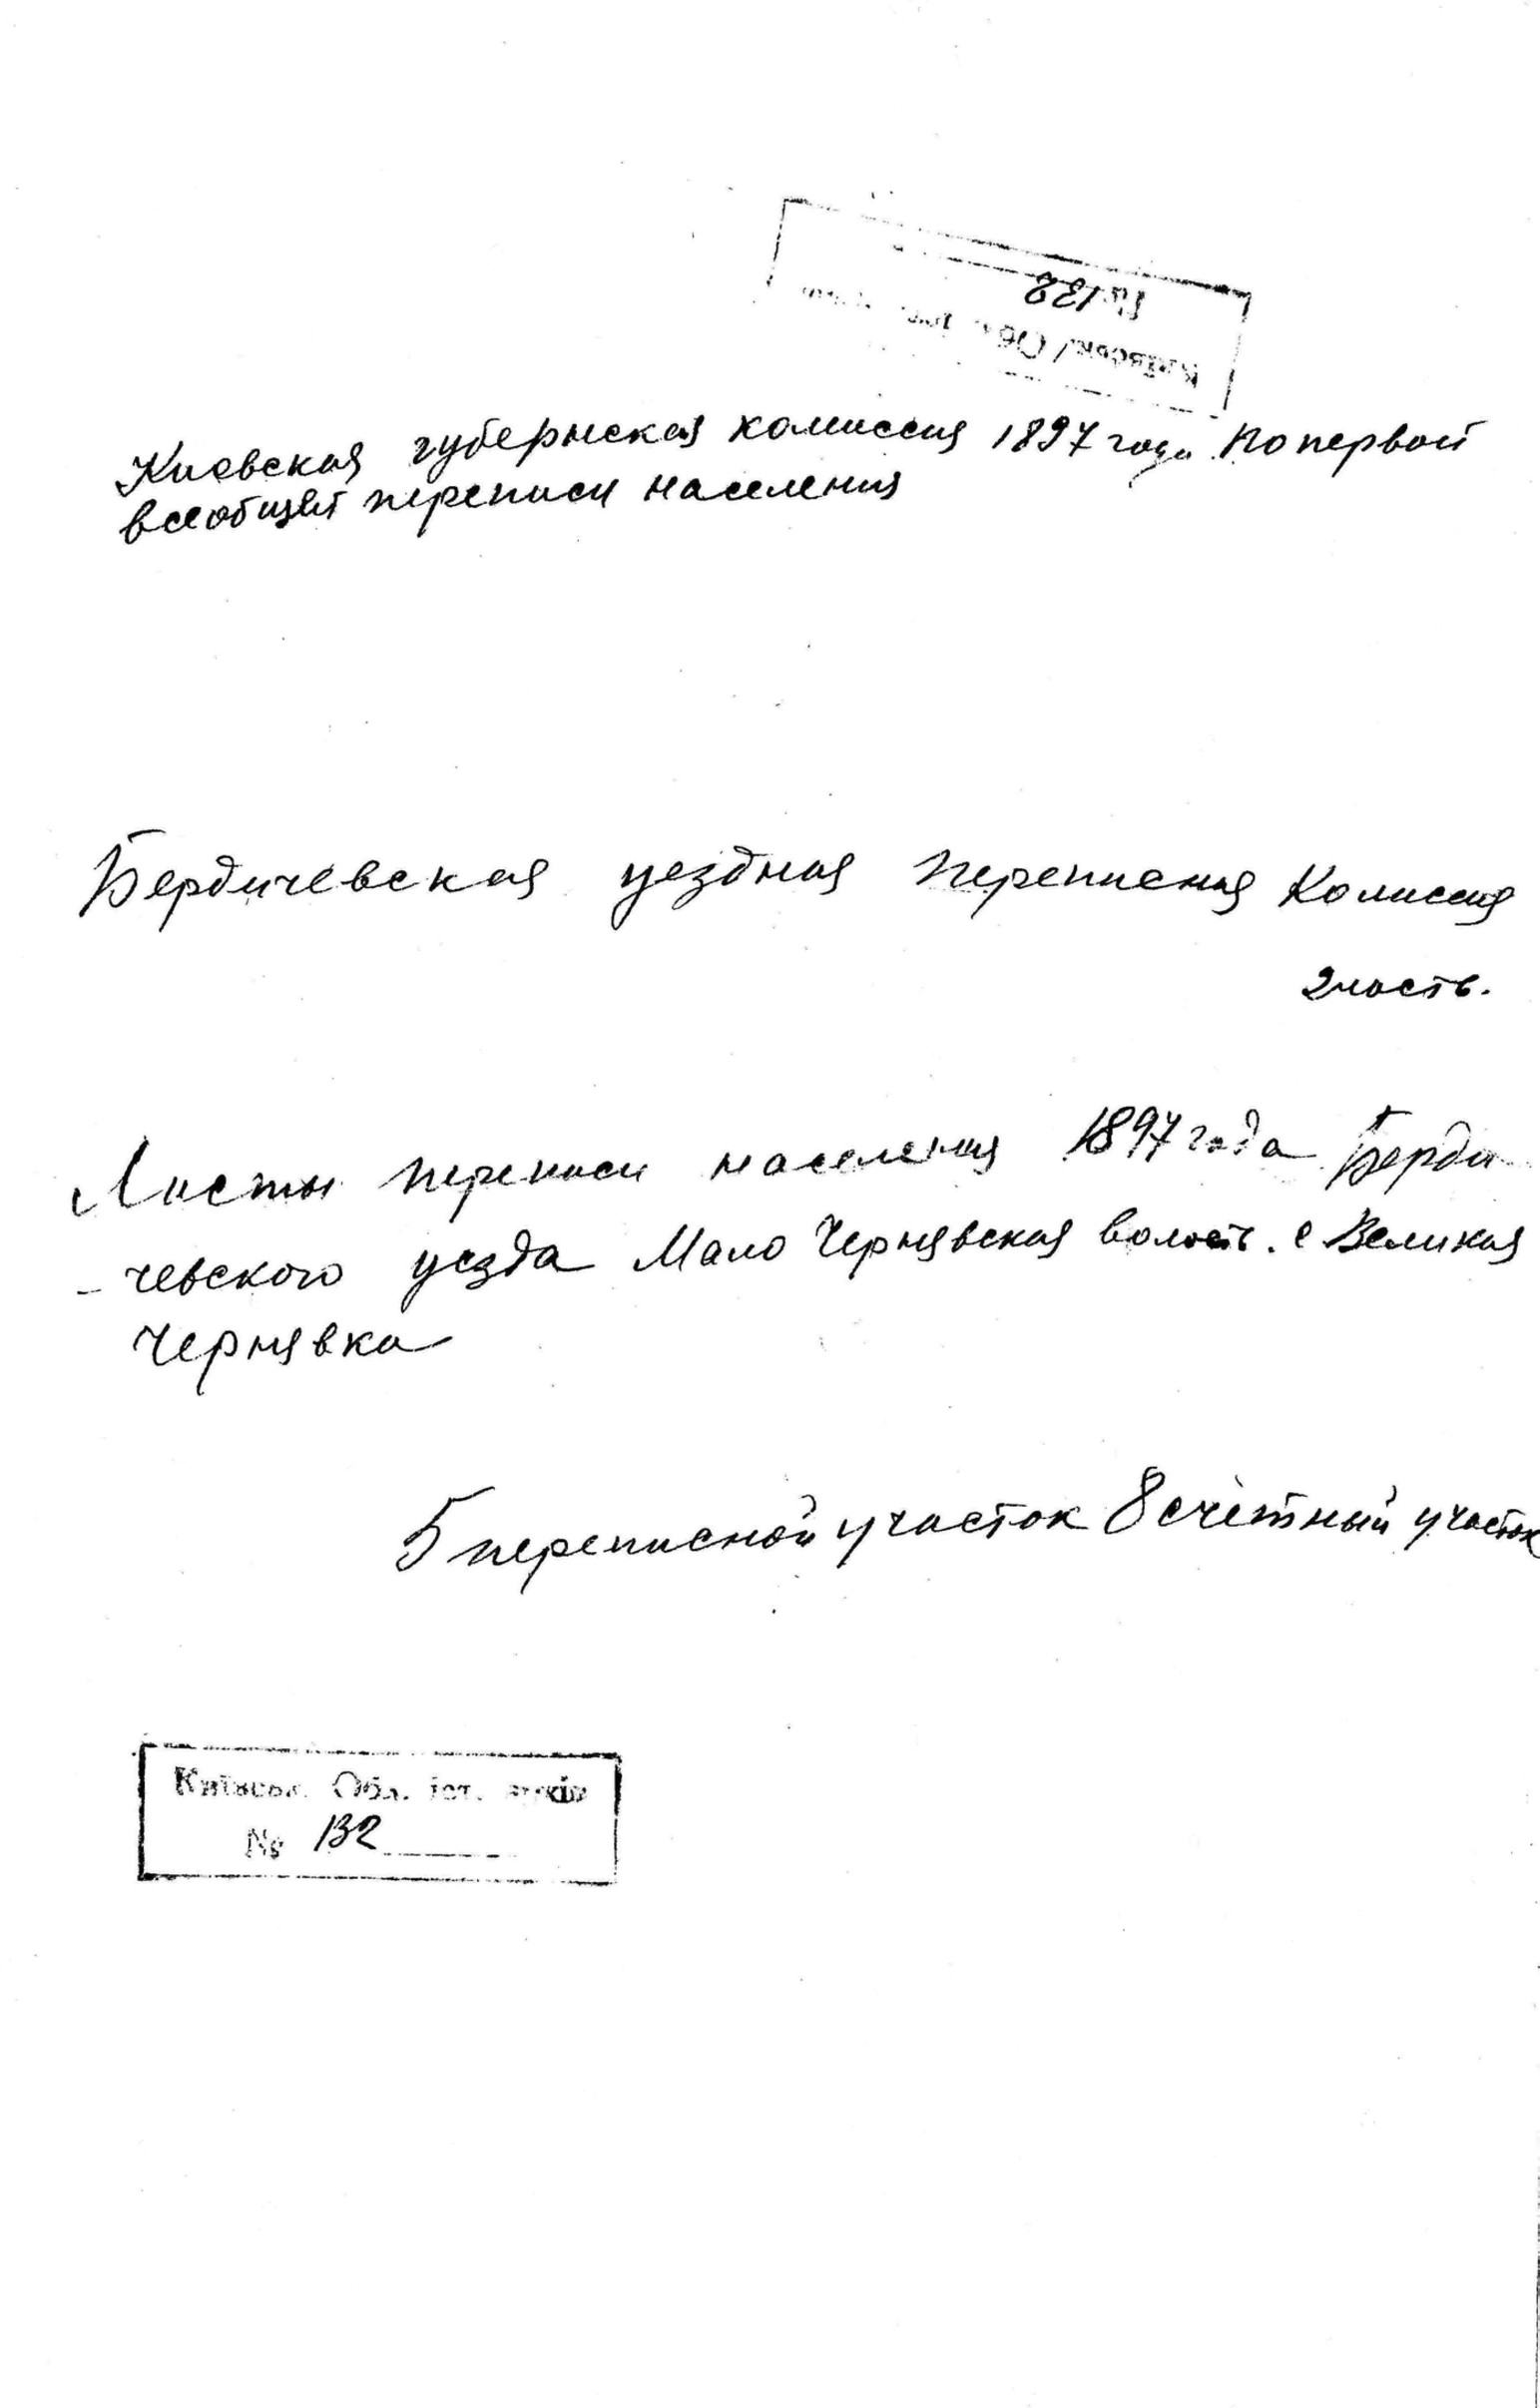 Київськ. Обл. іст.
132
Киевская губернская комиссия 1897 года по первой
всеобщей переписи населения
Бердичевская уездная переписная комиссия
2 часть.
Листы переписи населения 1897 года Берди-
- чевского уезда Мало Чернявская волость. с Великая
Чернявка
5 переписной участок 8 счётный участок
Київськ. Обл. іст. архів
№ 132